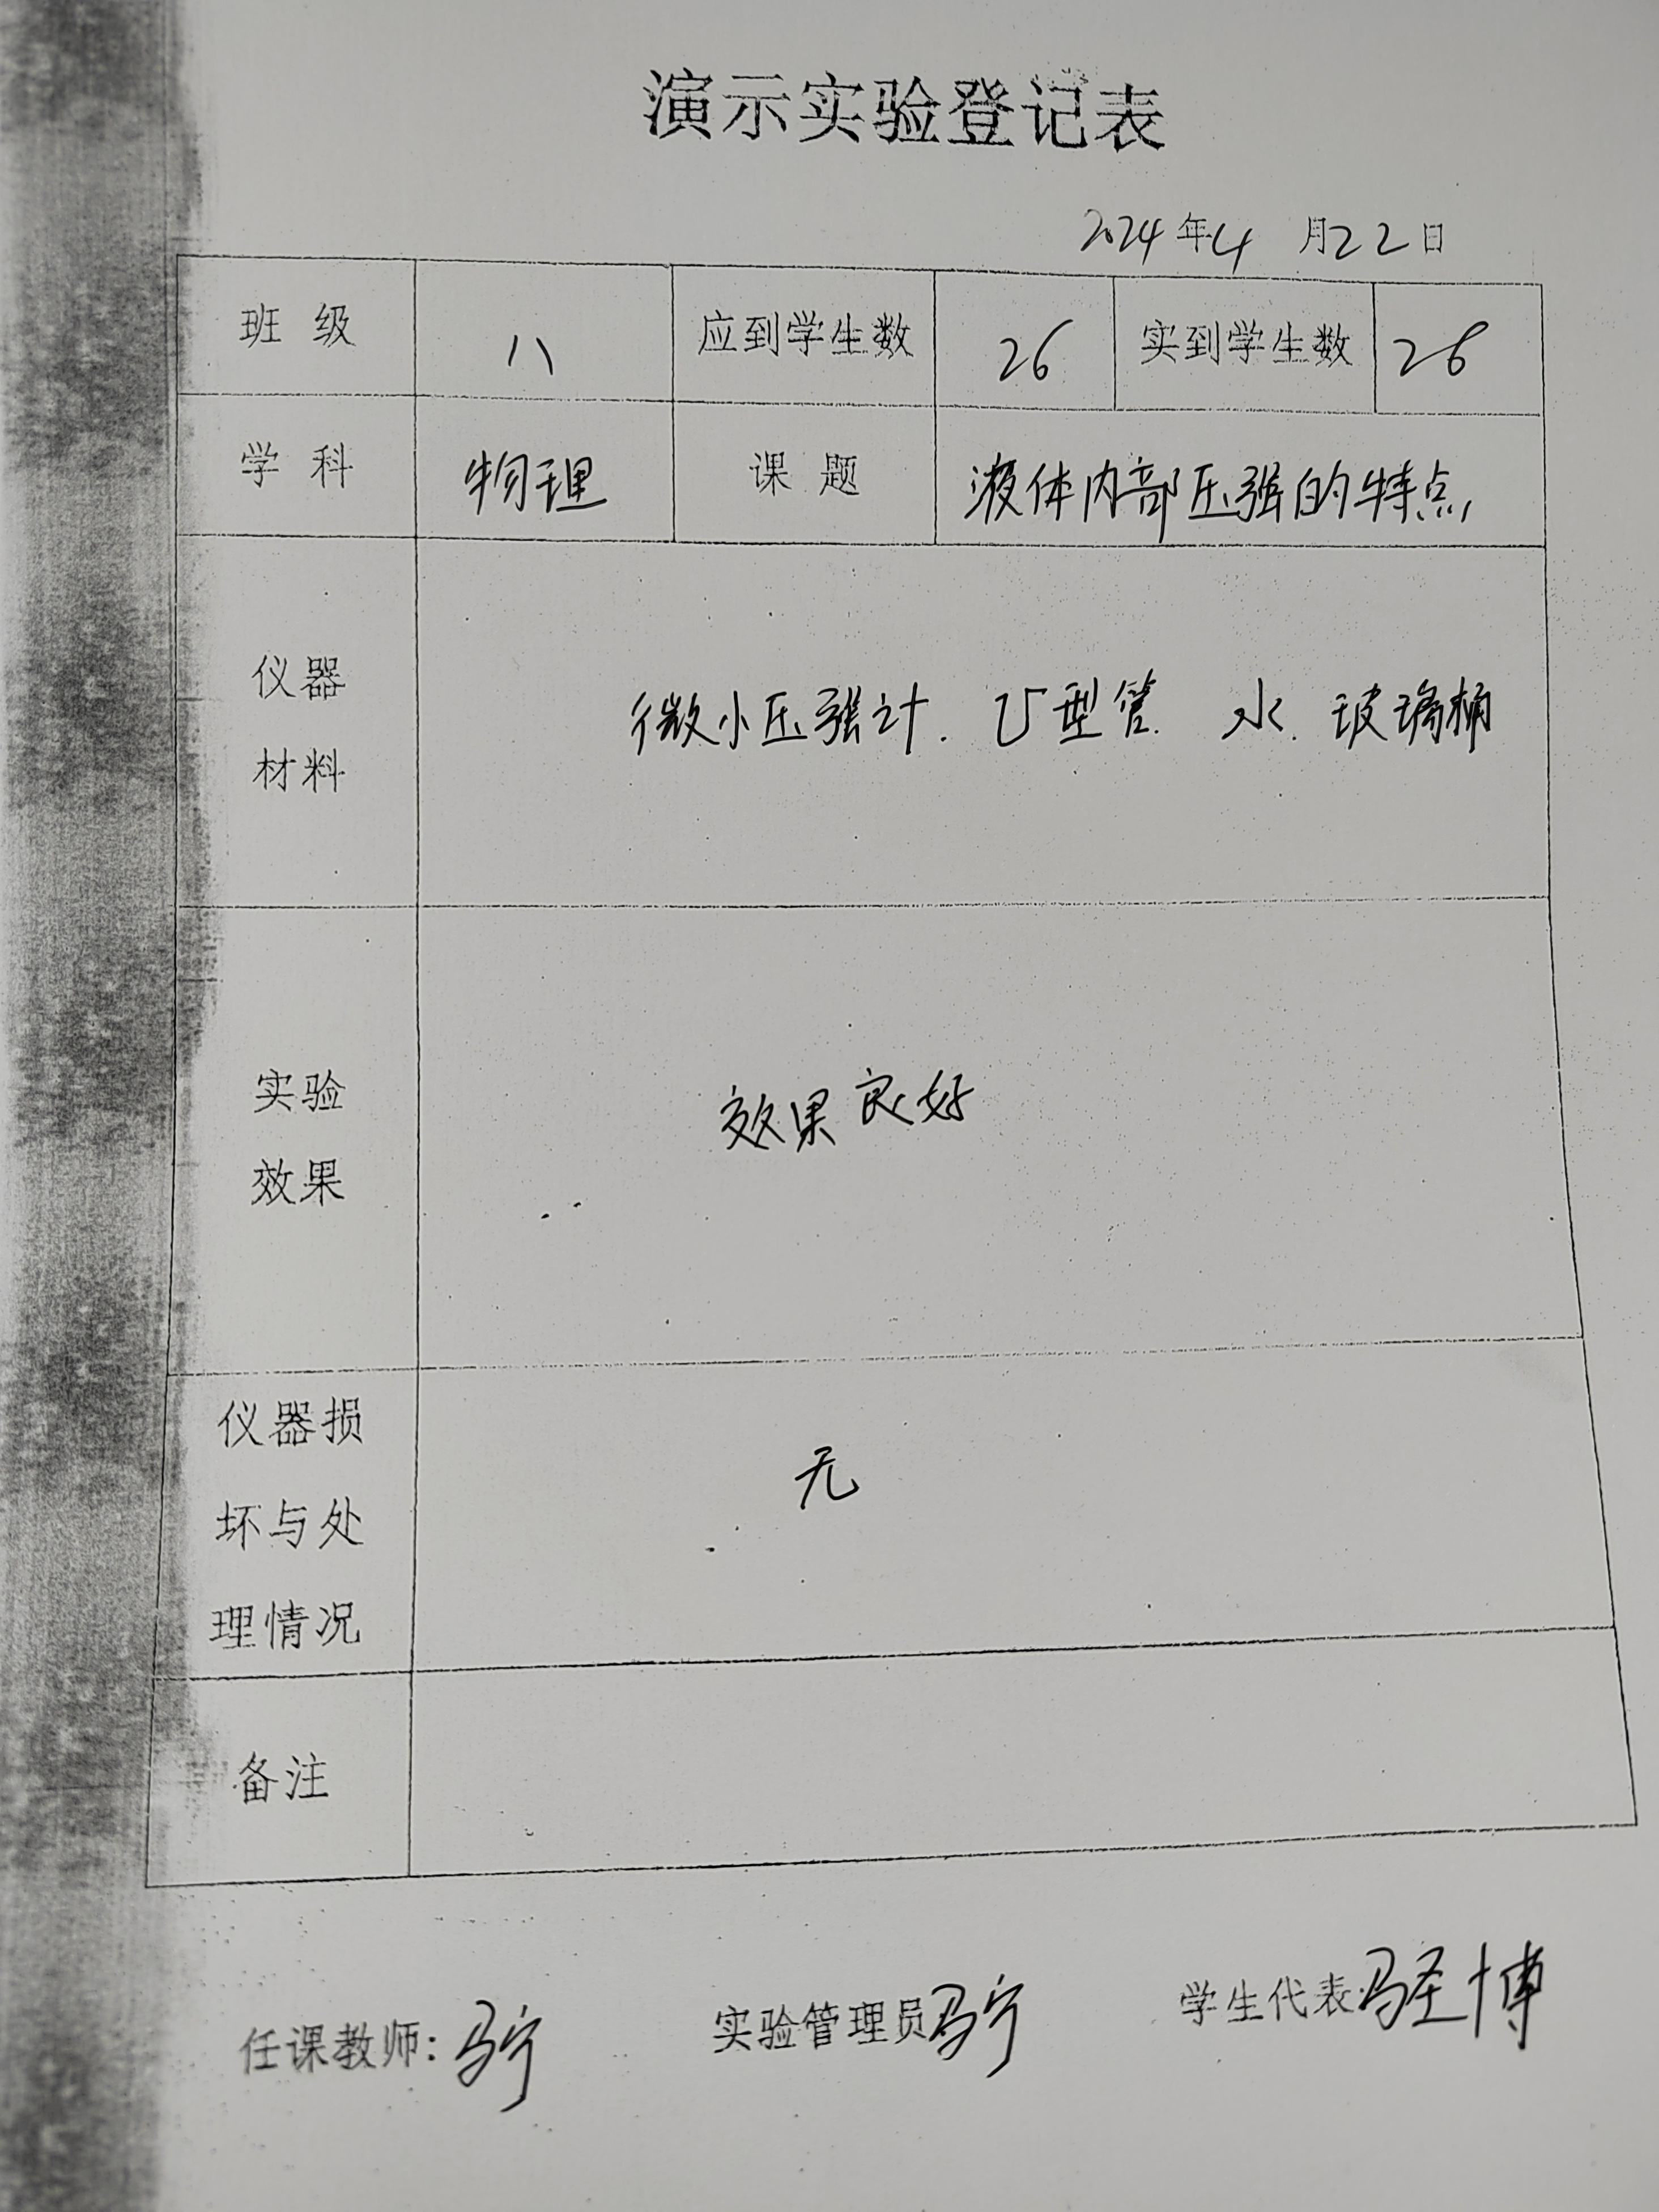 演示实验登记表
2024年4月22日
班级 八 应到学生数 26 实到学生数 26
学科 物理 课题 液体内部压强的特点
仪器
材料
微小压强计. U型管. 水. 玻璃桶
实验
效果
效果良好
仪器损
坏与处
理情况
无
备注
任课教师：马宁 实验管理员马宁 学生代表：马圣博